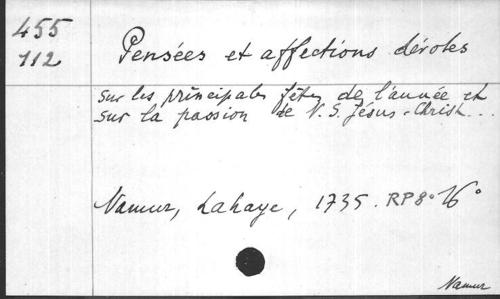 455
112
Pensées et affections dévotes
sur les principales fêtes de l'année et
sur la passion de N. S. Jésus-Christ...
Namur, Lahaye, 1735. RP 8° 16°
Namur